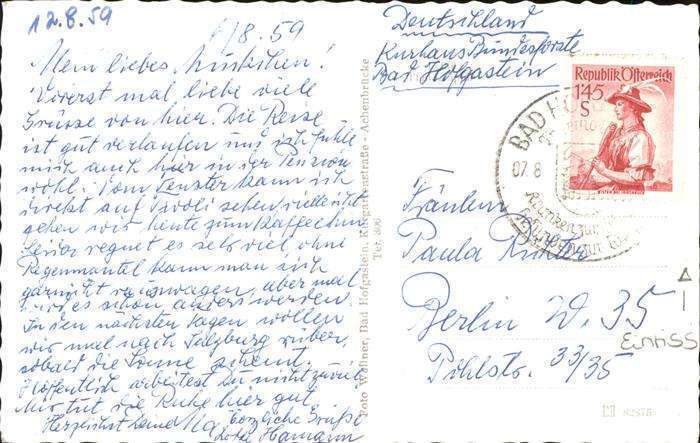 12.8.59
/8.59
Mein liebes
Vorerst mal liebe viele
Grüsse von hier. Die Reise
ist gut verlaufen und ich fühle
mich auch hier in der Pension
wohl. Vom Fenster kann ich
direkt auf Tivoli sehen vielleicht
gehen wir heute zum Kaffee hin
Leider regnet es sehr viel ohne
Regenmantel kann man sich
garnicht rauswagen, aber mal
wird es schön anders werden.
In den nächsten Tagen wollen
wir mal nach Salzburg rüber,
sobald die Sonne scheint.
Hoffentlich arbeitest Du nicht zuviel
Mir tut die Ruhe hier gut
Herzlichst Deine
Herzliche Grüße
Hamann
Foto Wallner, Bad Hofgastein, Kurgartenstraße - Achenbrücke
Tel. 300
Deutschland
Kurhaus Bundesforste
Bad Hofgastein
Republik Österreich
1·45
S
BAD HO
07. 8
Fräulein
Paula Richter
Berlin W. 35
Einriss
Pohlstr. 33/35